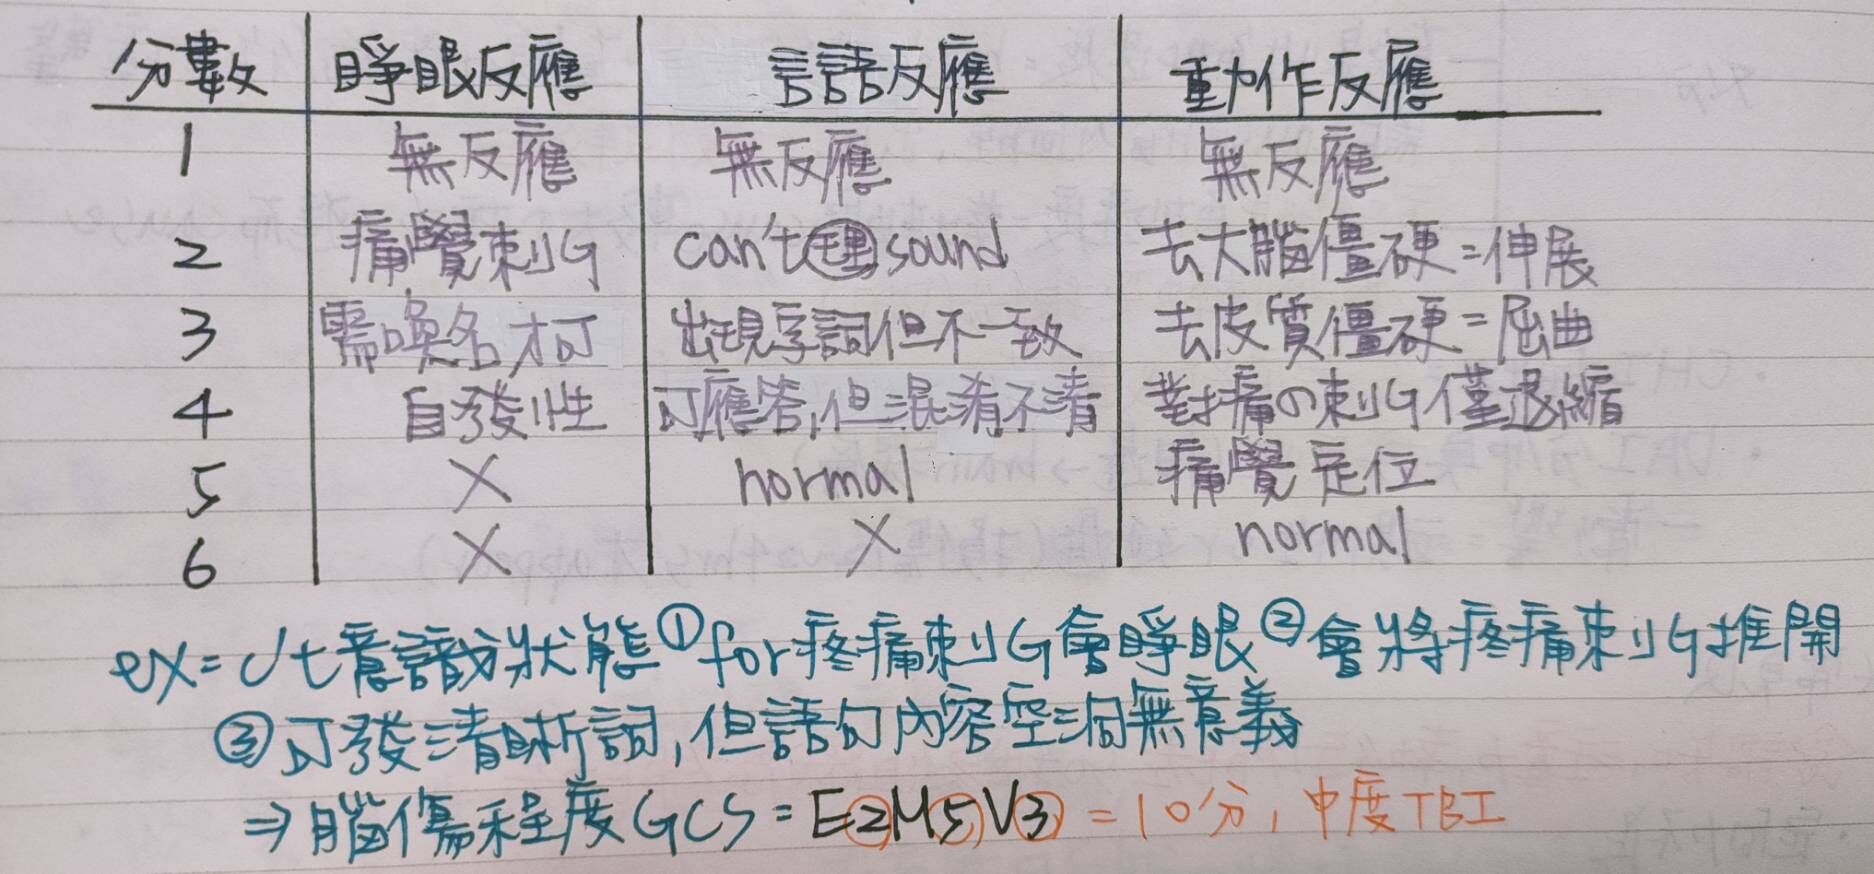 分數 睜眼反應 言語反應 動作反應
1 無反應 無反應 無反應
2 痛覺刺G can't 理 sound 去大腦僵硬=伸展
3 需喚名才可 出現字詞但不一致 去皮質僵硬=屈曲
4 自發性 可應答,但混淆不清 對痛の刺G僅退縮
5 X normal 痛覺定位
6 X X normal
ex= 意識狀態①for疼痛刺G會睜眼②會將疼痛刺G推開
③可發清晰詞,但語句內容空洞無意義
⇒腦傷程度GCS=E2M5V3=10分,中度TBI